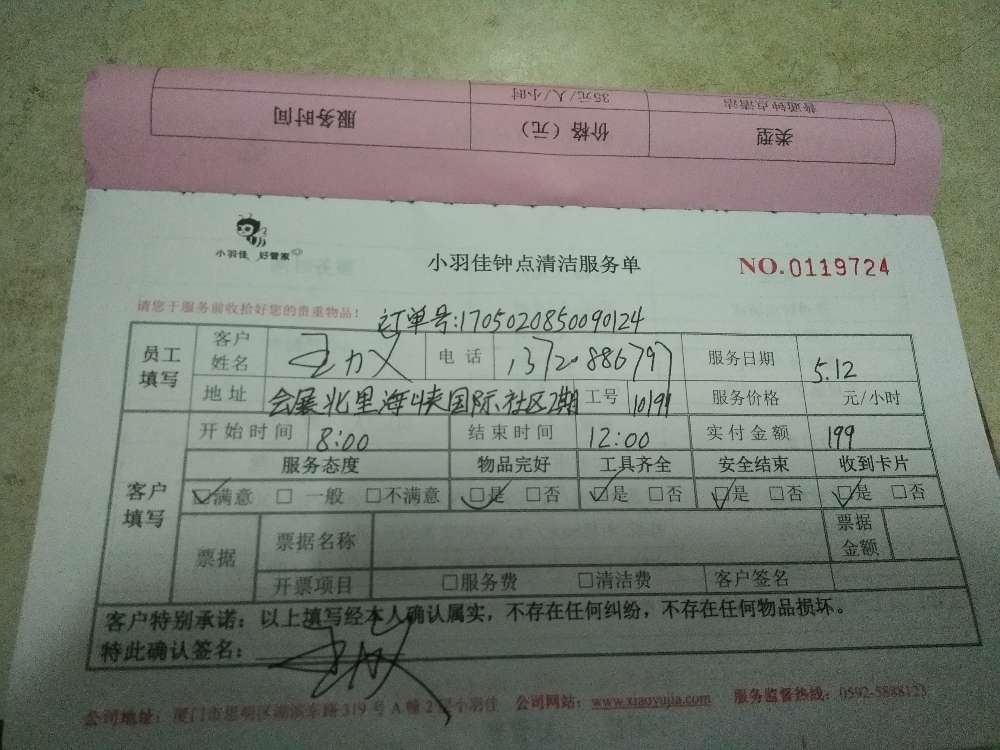 普通钟点清洁 35元/人/小时
类型 价格（元） 服务时间
小羽佳 好管家
小羽佳钟点清洁服务单
NO.0119724
请您于服务前收拾好您的贵重物品！
订单号:1705020850090124
员工填写 客户姓名 电话 服务日期 5.12
地址 会展北里海峡国际社区2期 工号 服务价格 元/小时
客户填写 开始时间 8:00 结束时间 12:00 实付金额 199
服务态度 物品完好 工具齐全 安全结束 收到卡片
☑满意 □一般 □不满意 ☑是 □否 ☑是 □否 ☑是 □否 ☑是 □否
票据 票据名称 票据金额
开票项目 □服务费 □清洁费 客户签名
客户特别承诺：以上填写经本人确认属实，不存在任何纠纷，不存在任何物品损坏。
特此确认签名：
公司地址：厦门市思明区湖滨东路319号A幢2 小羽佳 公司网站：www.xiaoyujia.com 服务监督热线：0592-5888123